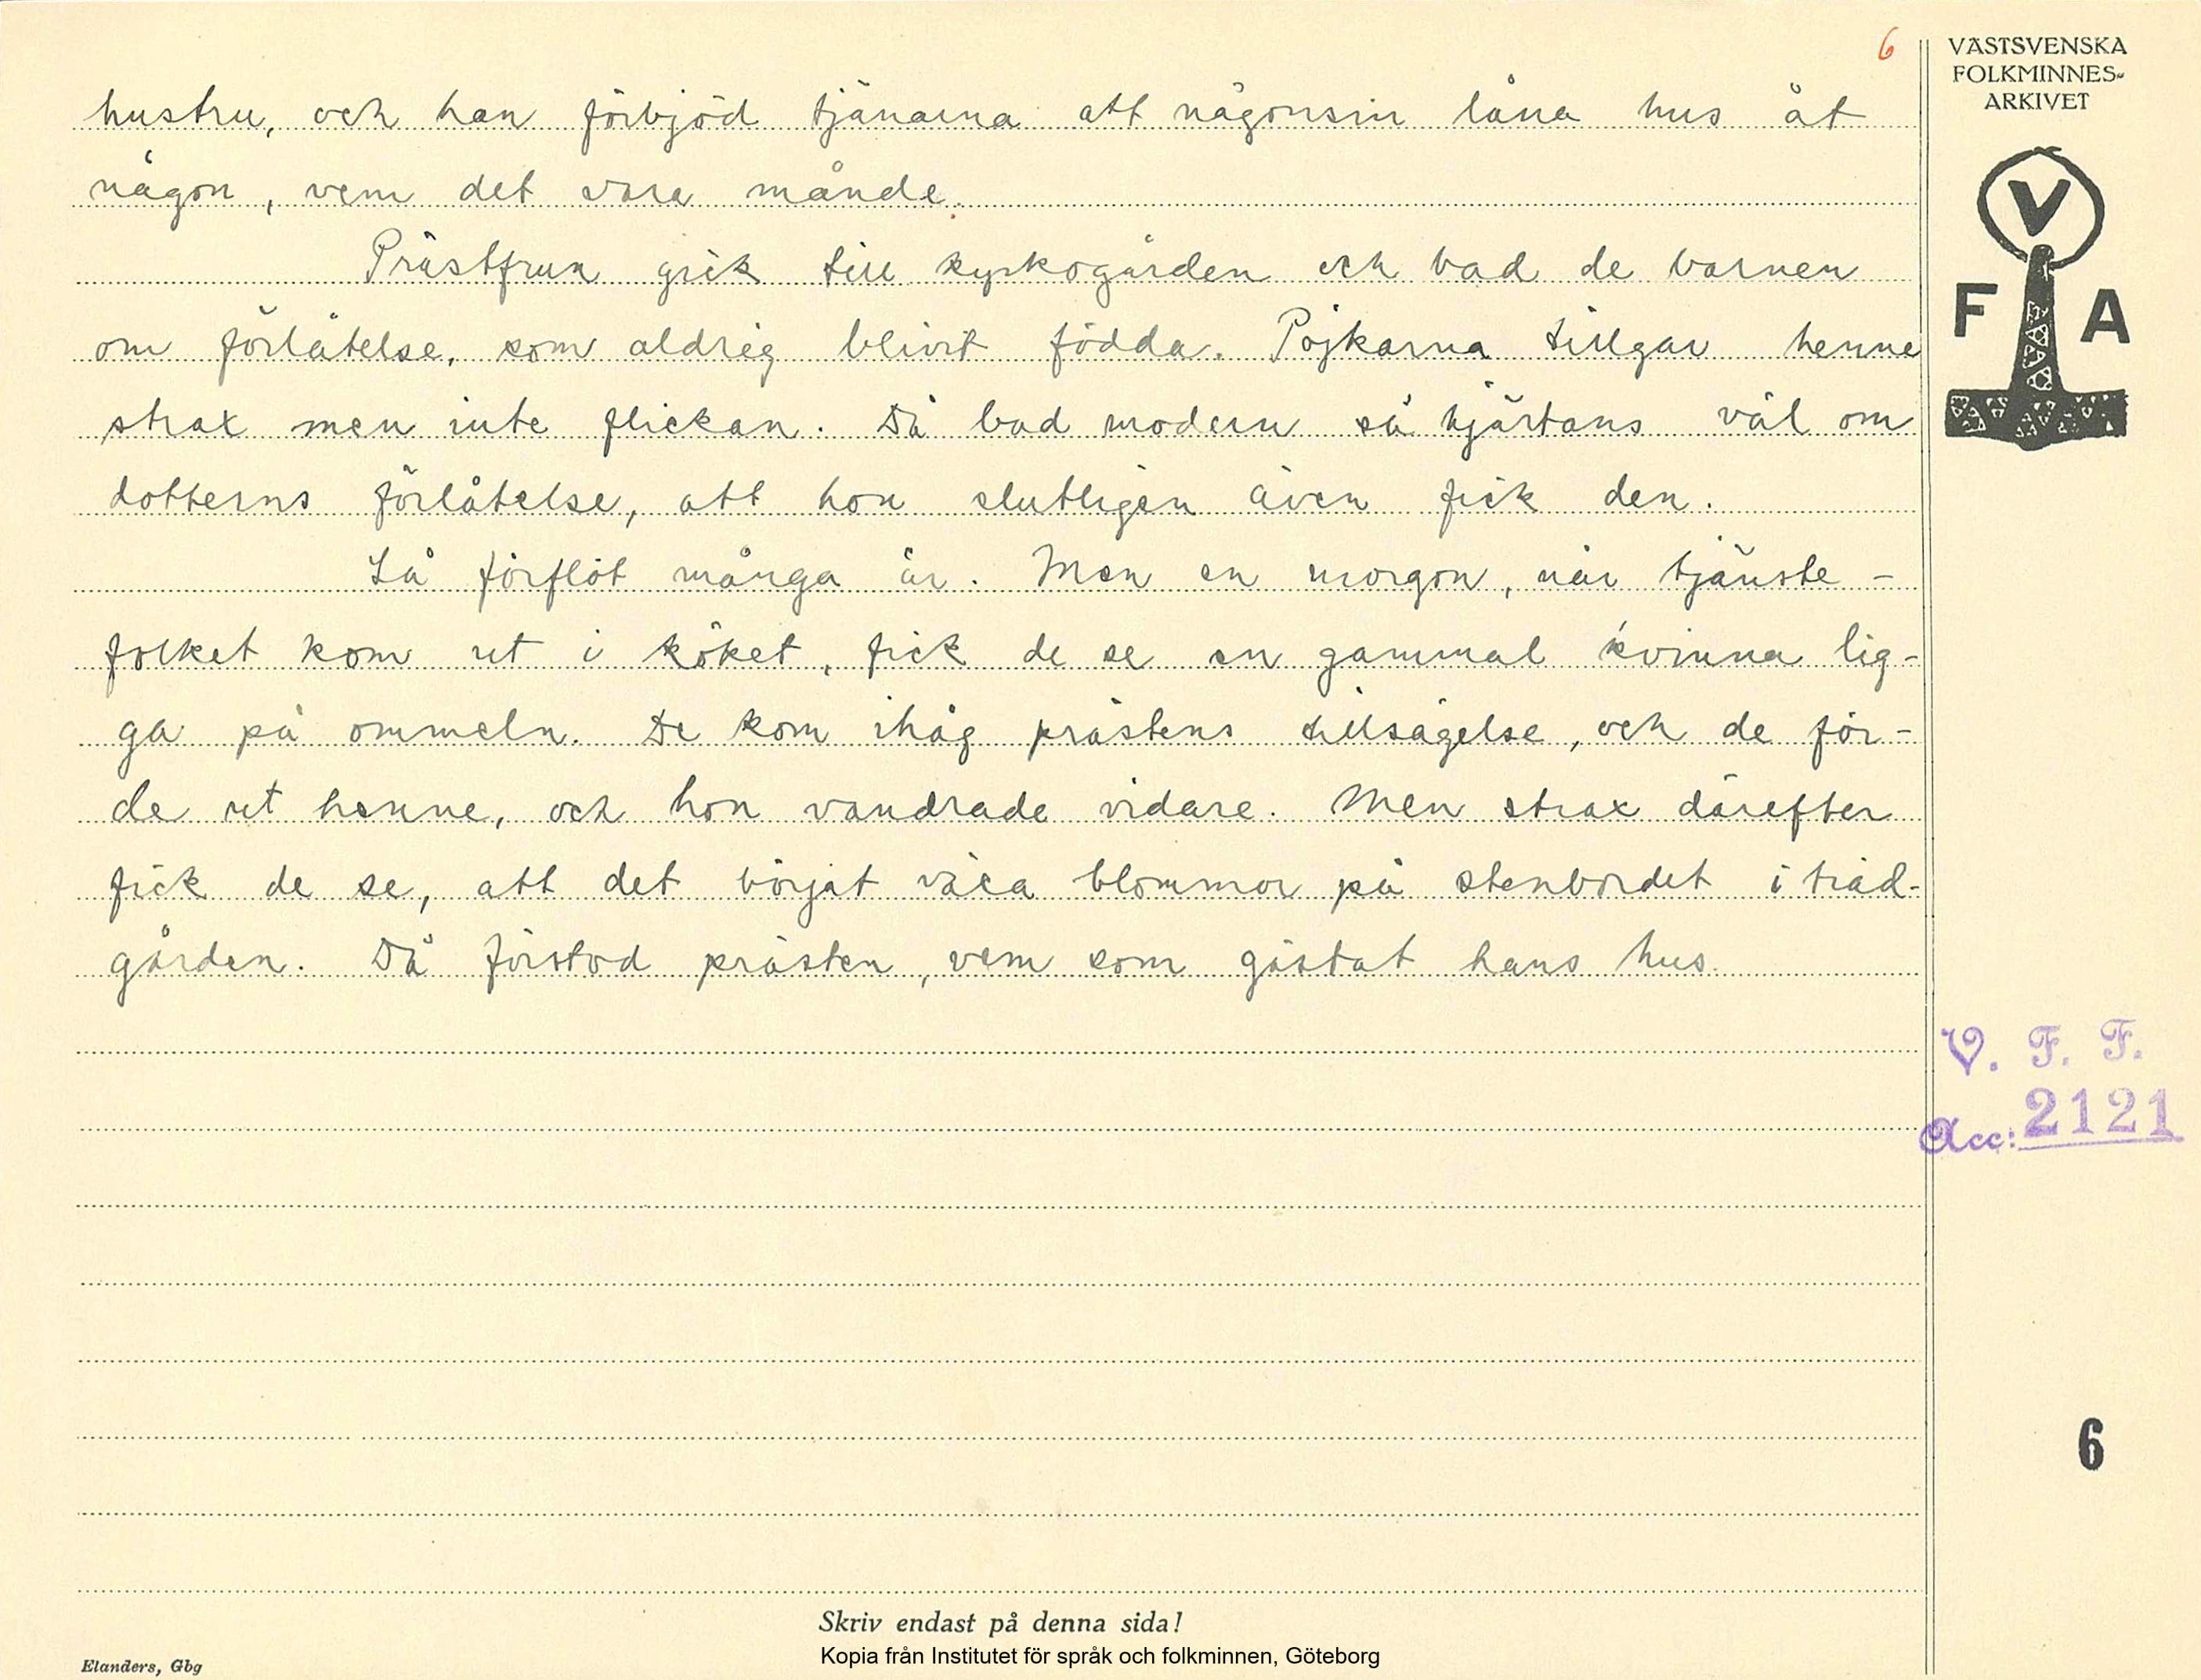 6
VÄSTSVENSKA
FOLKMINNES-
ARKIVET
V
F A
hustru, och han förbjöd tjänarna att någonsin låna hus åt
någon, vem det vara månde.
Prästfrun gick till kyrkogården och bad de barnen
om förlåtelse, som aldrig blivit födda. Pojkarna tillgav henne
strax men inte flickan. Då bad modern så hjärtans väl om
dotterns förlåtelse, att hon slutligen även fick den.
Så förflöt många år. Men en morgon, när tjänste-
folket kom ut i köket, fick de se en gammal kvinna lig-
ga på ommeln. De kom ihåg prästens tillsägelse, och de för-
de ut henne, och hon vandrade vidare. Men strax därefter
fick de se, att det börjat växa blommor på stenbordet i träd-
gården. Då förstod prästen, vem som gästat hans hus.
V. F. F.
Acc: 2121
6
Skriv endast på denna sida!
Kopia från Institutet för språk och folkminnen, Göteborg
Elanders, Gbg